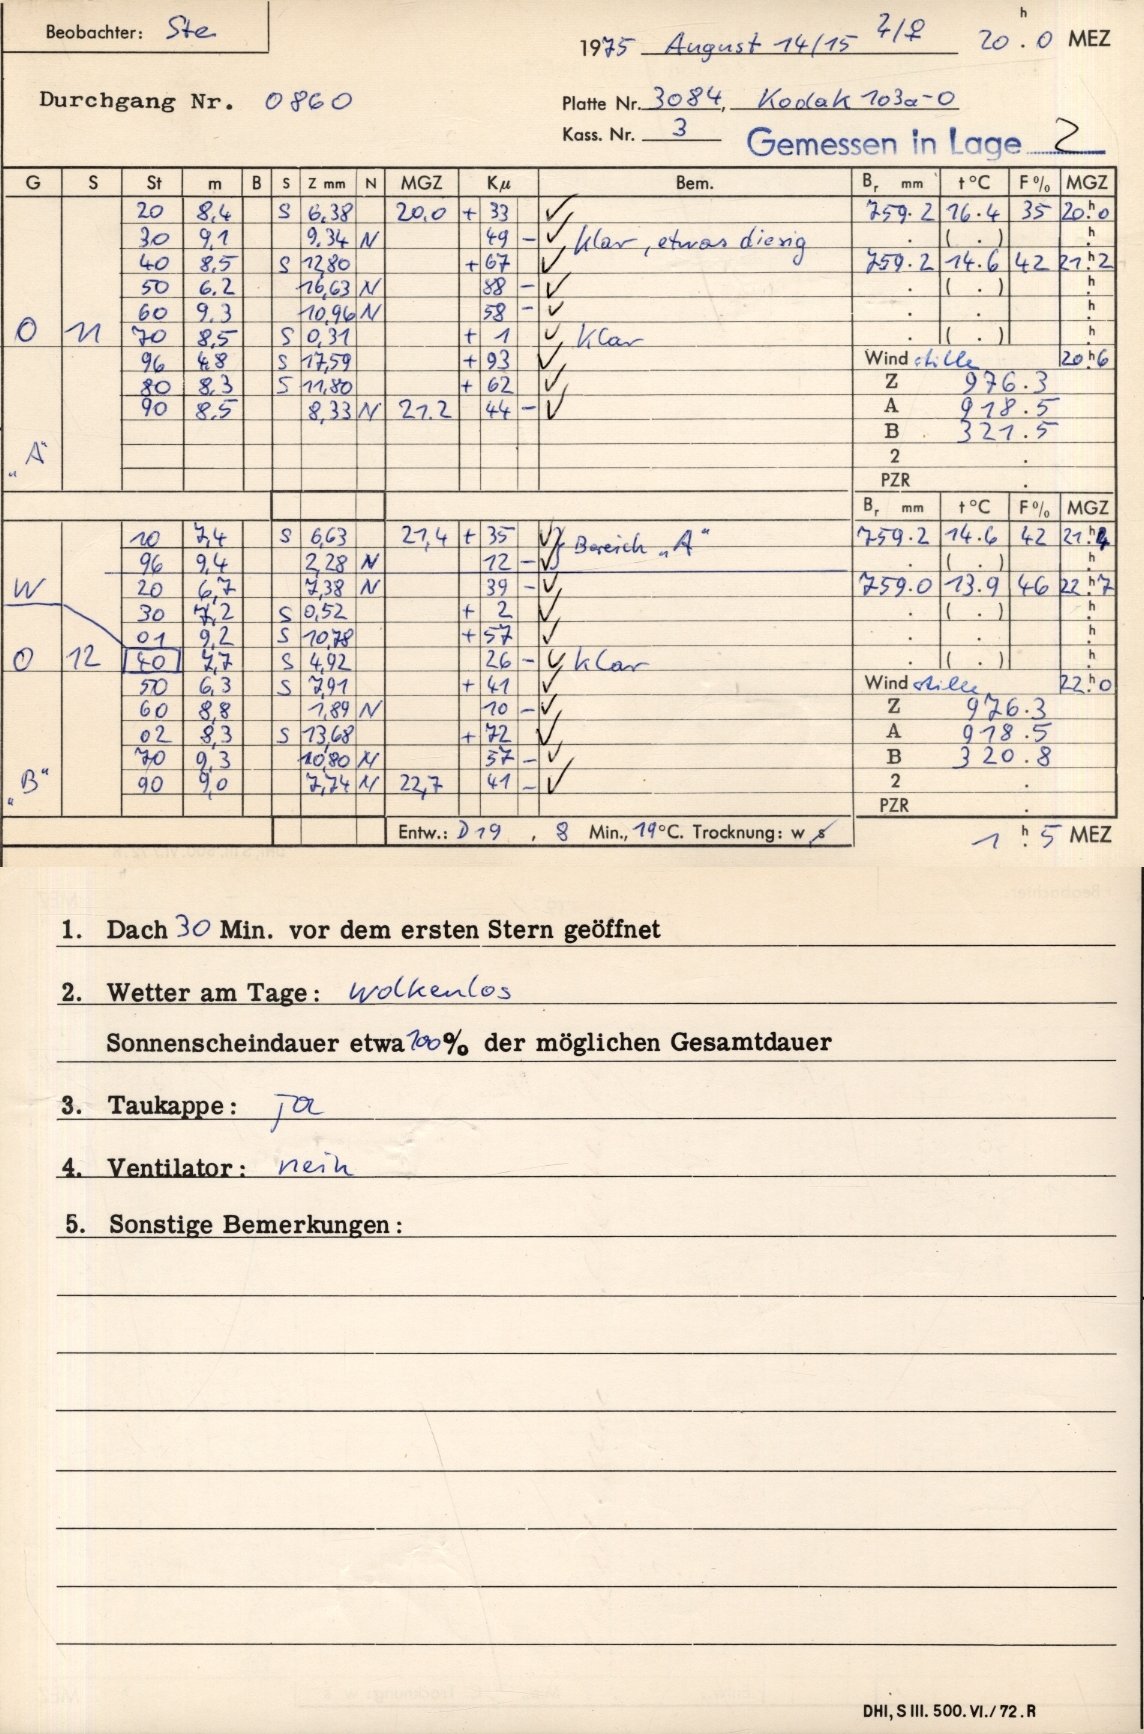 Beobachter: Ste
1975 August 14/15 ♃/♀ 20 h . 0 MEZ
Durchgang Nr. 0860
Platte Nr. 3084, Kodak 103a-O
Kass. Nr. 3 Gemessen in Lage 2
G S St m B S Z mm N MGZ Kμ Bem. Br mm t °C F % MGZ
20 8,4 S 6,38 20,0 + 33 ✓ 759.2 16.4 35 20 h 0
30 9,1 9,34 N 49 – ✓ klar, etwas diesig . ( . ) h .
40 8,5 S 12,80 + 67 ✓ 759.2 14.6 42 21 h 2
50 6.2 16,63 N 88 – ✓ . ( . ) h .
60 9.3 10,96 N 58 – ✓ . . h .
O 11 70 8,5 S 0,31 + 1 ✓ klar . ( . ) h .
96 4,8 S 17,59 + 93 ✓ Wind stille 20 h 6
80 8,3 S 11,80 + 62 ✓ Z 976.3
90 8,5 8,33 N 21.2 44 – ✓ A 918.5
„A“ B 321.5
2 .
PZR .
Br mm t °C F % MGZ
10 7,4 S 6,63 21,4 + 35 ✓ } Bereich „A“ 759.2 14.6 42 21 h 4
96 9,4 2,28 N 12 – ✓ . ( . ) h .
W 20 6,7 7,38 N 39 – ✓ 759.0 13.9 46 22 h 7
30 7,2 S 0,52 + 2 ✓ . ( . ) h .
01 9,2 S 10,78 + 57 ✓ . . h .
O 12 40 7,7 S 4,92 26 – ✓ klar . ( . ) h .
50 6,3 S 7,91 + 41 ✓ Wind stille 22 h 0
60 8,8 1,89 N 10 – ✓ Z 976.3
02 8,3 S 13,68 + 72 ✓ A 918.5
70 9,3 10,80 N 57 – ✓ B 320.8
„B“ 90 9,0 7,74 N 22,7 41 – ✓ 2 .
PZR .
Entw.: D 19 , 8 Min., 19 °C. Trocknung: w s 1 h . 5 MEZ
1. Dach 30 Min. vor dem ersten Stern geöffnet
2. Wetter am Tage: wolkenlos
Sonnenscheindauer etwa 100 % der möglichen Gesamtdauer
3. Taukappe: ja
4. Ventilator: nein
5. Sonstige Bemerkungen:
DHI, S III. 500. VI. / 72 . R